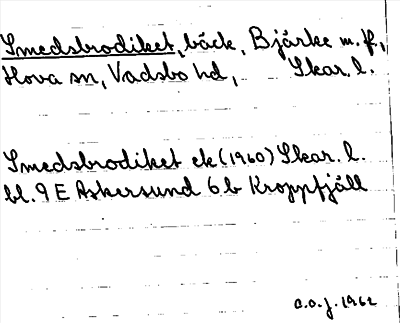 Smedsbrodiket, bäck, Bjärke m.fl.,
Hova sn, Vadsbo hd, Skar. l.
Smedsbrodiket ek (1960) Skar. l.
bl. 9 E Askersund 6 b Kroppfjäll
a.a.j. 1962